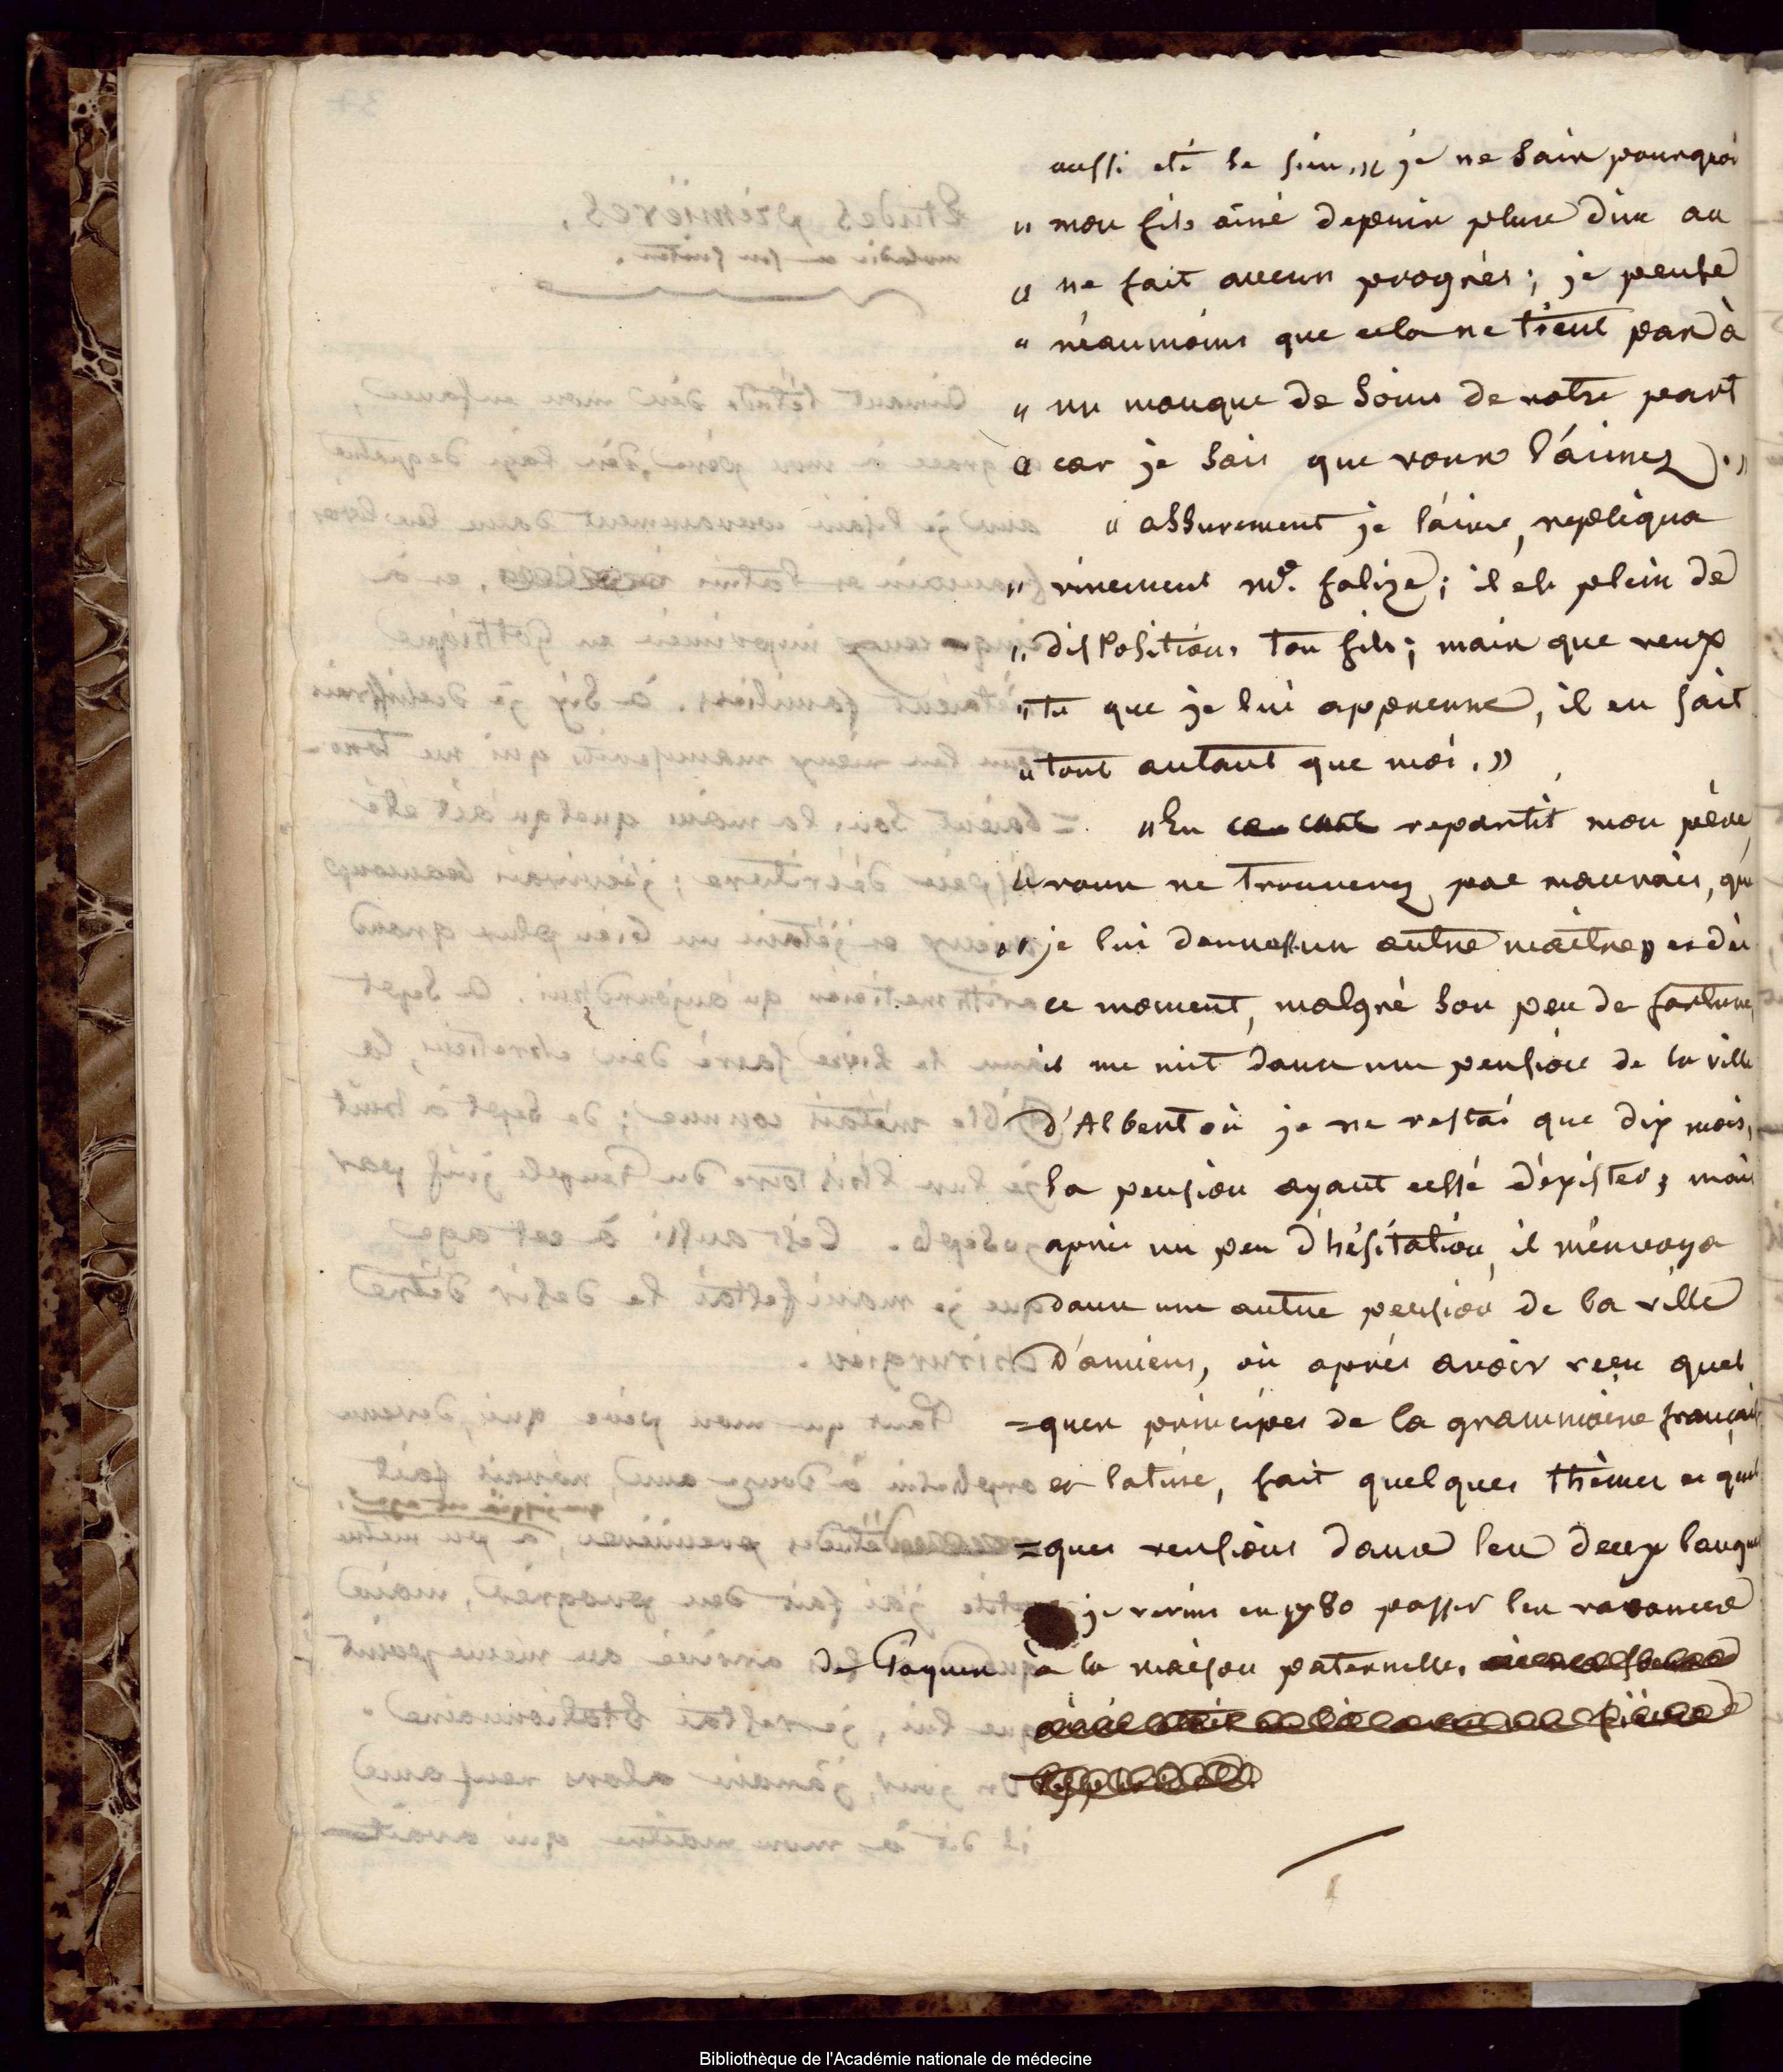 aussi eté le sien. " je ne sais pourquoi
" mon fils ainé depuis plus d'un an
" ne fait aucun progrès; je pense
" néanmoins que cela ne tient pas à
" un manque de soins de votre part
" car je sais que vous l'aimez."
" assurement je l'aime, repliqua
" vivement Mr. falize; il est plein de
" dispositions ton fils; mais que veux
" tu que je lui apprenne, il en sait
" tout autant que moi. "
" En ce cas repartit mon père,
" vous ne trouverez pas mauvais, que
" je lui donne un autre maître " et dès
ce moment, malgré son peu de fortune,
il me mit dans une pension de la ville
d'Albert où je ne restai que dix mois,
la pension ayant cessé d'exister; mais
après un peu d'hésitation, il m'envoya
dans une autre pension de la ville
D'amiens, où après avoir reçu quel
=ques principes de la grammaire français
et latine, fait quelques thèmes et quel
=ques versions dans les deux langues
je revins en 1780 passer les vacances
de Paques à la maison paternelle.
Bibliothèque de l'Académie nationale de médecine